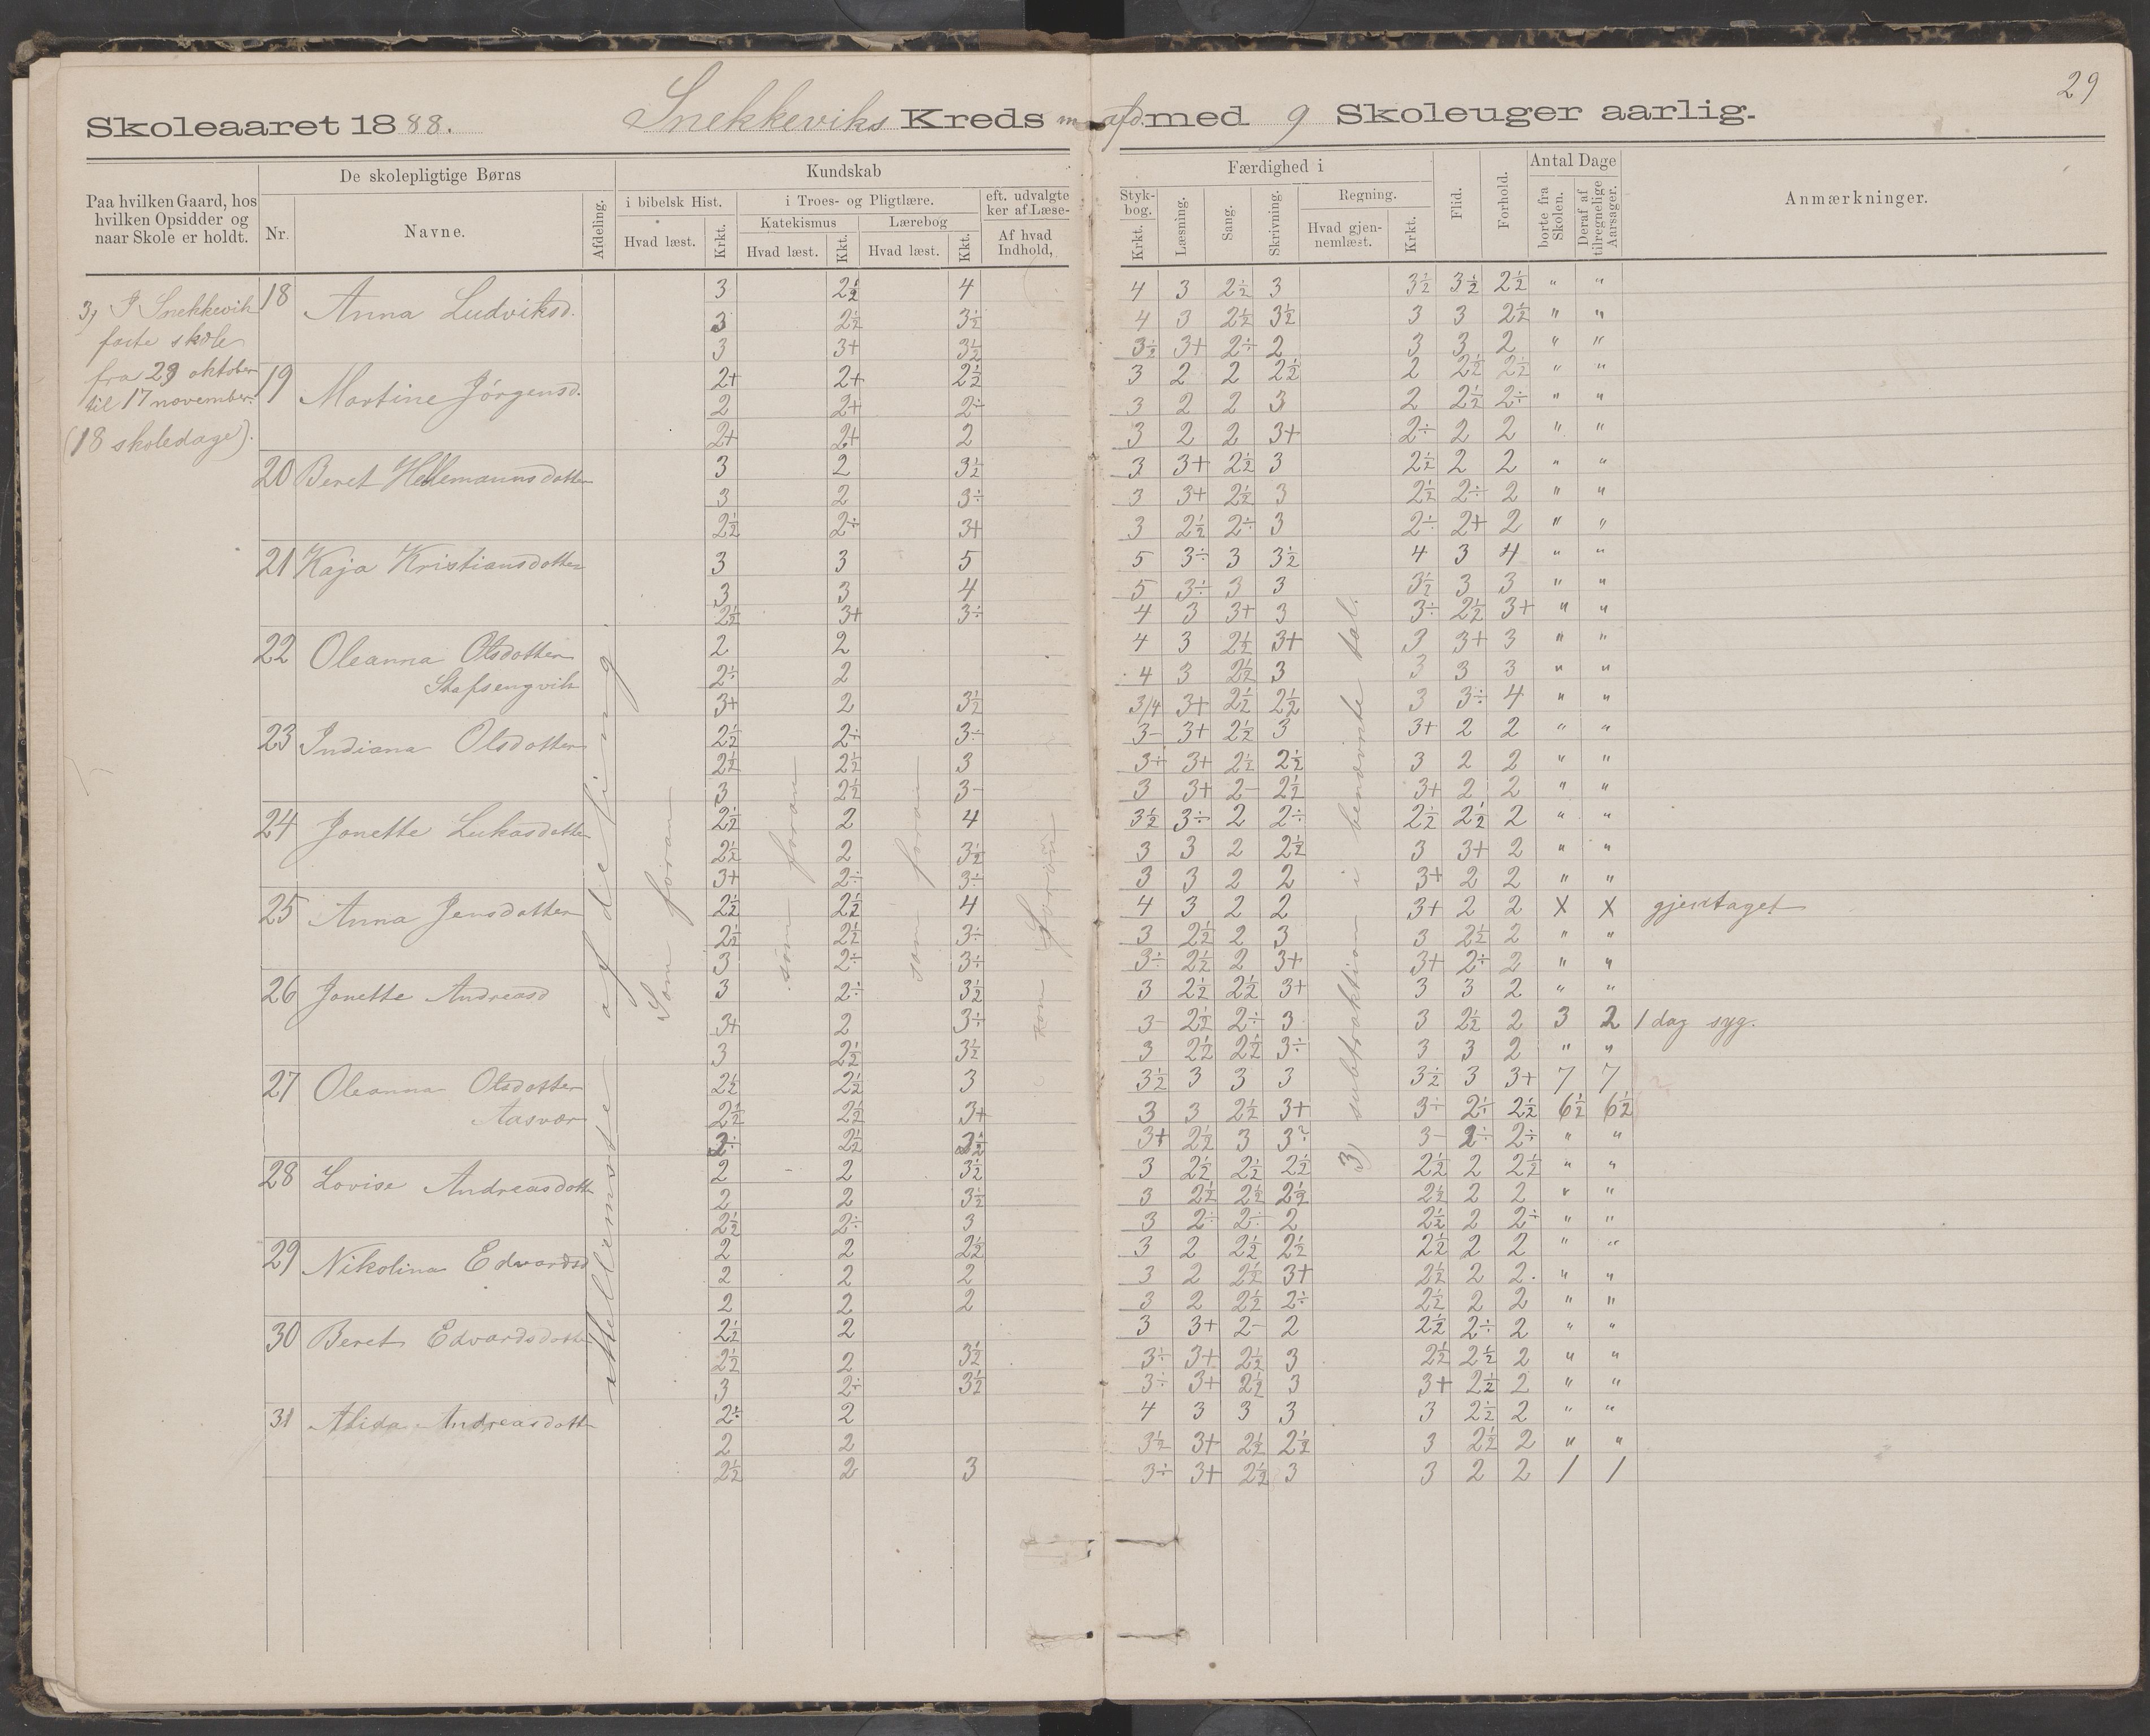 29
Skoleaaret 1888. Snekkeviks Kreds m afd. med 9 Skoleuger aarlig.
Paa hvilken Gaard, hos hvilken Opsidder og naar Skole er holdt.
De skolepligtige Børns
Nr.
Navne.
Afdeling.
Kundskab
i bibelsk Hist.
Hvad læst.
Krkt.
i Troes- og Pligtlære.
Katekismus
Hvad læst.
Kkt.
Lærebog
Hvad læst.
Kkt.
eft. udvalgte
ker af Læse-
Af hvad
Indhold,
Færdighed i
Styk-
bog.
Krkt.
Læsning.
Sang.
Skrivning.
Regning.
Hvad gjen-
nemlæst.
Krkt.
Flid.
Forhold.
Antal Dage
borte fra
Skolen.
Deraf af
tilregnelige
Aarsager.
Anmærkninger.
3) I Snekkevik
faste skole
fra 29 oktober
til 17 november.
(18 skoledage).
mellemste afdeling.
Som foran
som foran
som foran
som foran
3) subtraktion i benævnte tal.
18 Anna Ludviksd. 3 2½ 4 4 3 2½ 3 3½ 3½ 2½ " "
3 2½ 3½ 4 3 2½ 3½ 3 3 2½ " "
3 3+ 3½ 3½ 3+ 2÷ 2 3 3 2 " "
19 Martine Jörgensd. 2+ 2+ 2½ 3 2 2 2½ 2 2½ 2½ " "
2 2+ 2÷ 3 2 2 3 2 2½ 2÷ " "
2+ 2+ 2 3 2 2 3+ 2÷ 2 2 " "
20 Beret Hellemannsdotter 3 2 3½ 3 3+ 2½ 3 2½ 2 2 " "
3 2 3÷ 3 3+ 2½ 3 2½ 2÷ 2 " "
2½ 2÷ 3+ 3 2½ 2÷ 3 2÷ 2+ 2 " "
21 Kaja Kristiansdotter 3 3 5 5 3÷ 3 3½ 4 3 4 " "
3 3 4 5 3÷ 3 3 3½ 3 3 " "
2½ 3+ 3÷ 4 3 3+ 3 3÷ 2½ 3+ " "
22 Oleanna Olsdotter 2 2 4 3 2½ 3+ 3 3+ 3 " "
Stafsengvik 2÷ 2 4 3 2½ 3 3 3 3 " "
3+ 2 3½ 3/4 3+ 2½ 2½ 3 3÷ 4 " "
23 Indiana Olsdotter 2½ 2÷ 3÷ 3- 3+ 2½ 3 3+ 2 2 " "
2½ 2½ 3 3÷ 3+ 2½ 2½ 3 2 2 " "
3 2½ 3- 3 3+ 2- 2½ 3+ 2 2 " "
24 Jonette Lukasdotter 2½ 2 4 3½ 3÷ 2 2÷ 2½ 2½ 2 " "
2½ 2 3½ 3 3 2 2½ 3 3+ 2 " "
3+ 2÷ 3÷ 3 3 2 2 3+ 2 2 " "
25 Anna Jensdotter 2½ 2½ 4 4 3 2 2 3+ 2 2 X X gjentaget
2½ 2½ 3÷ 3 2½ 2 3 3 2½ 2 " "
3 2÷ 3÷ 3÷ 2½ 2 3+ 3+ 2÷ 2 " "
26 Jonette Andreasd 3 2÷ 3½ 3 2½ 2½ 3+ 3 3 2 " "
3+ 2 3÷ 3- 2½ 2÷ 3 3 2½ 2 3 2 1 dag syg.
3 2½ 3½ 3 2½ 2½ 3÷ 3 3 2 " "
27 Oleanna Olsdotter 2½ 2½ 3 3½ 3 3 3 3½ 3 3+ 7 7
Aasvær 2½ 2½ 3+ 3 3 2½ 3+ 3÷ 2÷ 2½ 6½ 6½
2÷ 2½ 3½ 3+ 2½ 3 3÷ 3- 2÷ 2÷ " "
28 Lovise Andreasdott 2 2 3½ 3 2½ 2½ 2½ 2½ 2 2½ " "
2 2 3½ 3 2½ 2½ 2½ 2½ 2 2 " "
2½ 2÷ 3 3 2÷ 2÷ 2 2½ 2 2÷ " "
29 Nikolina Edvardsd 2 2 2½ 3 2 2½ 2½ 2½ 2 2 " "
2 2 2 3 2 2½ 3+ 2½ 2 2. " "
2 2 2 3 2 2½ 2÷ 2½ 2 2 " "
30 Beret Edvardsdotte 2½ 2 3 3+ 2- 2 2½ 2÷ 2 " "
2½ 2 3½ 3÷ 3+ 2½ 3 2½ 2½ 2 " "
3 2÷ 3½ 3÷ 3+ 2½ 3 3+ 2½ 2 " "
31 Alida Andreasdott 2÷ 2 4 3 3 3 3 2½ 2 " "
2 2 3½ 3+ 2½ 2½ 3 2½ 2 " "
2½ 2 3 3÷ 3+ 2½ 3 3 2 2 1 1